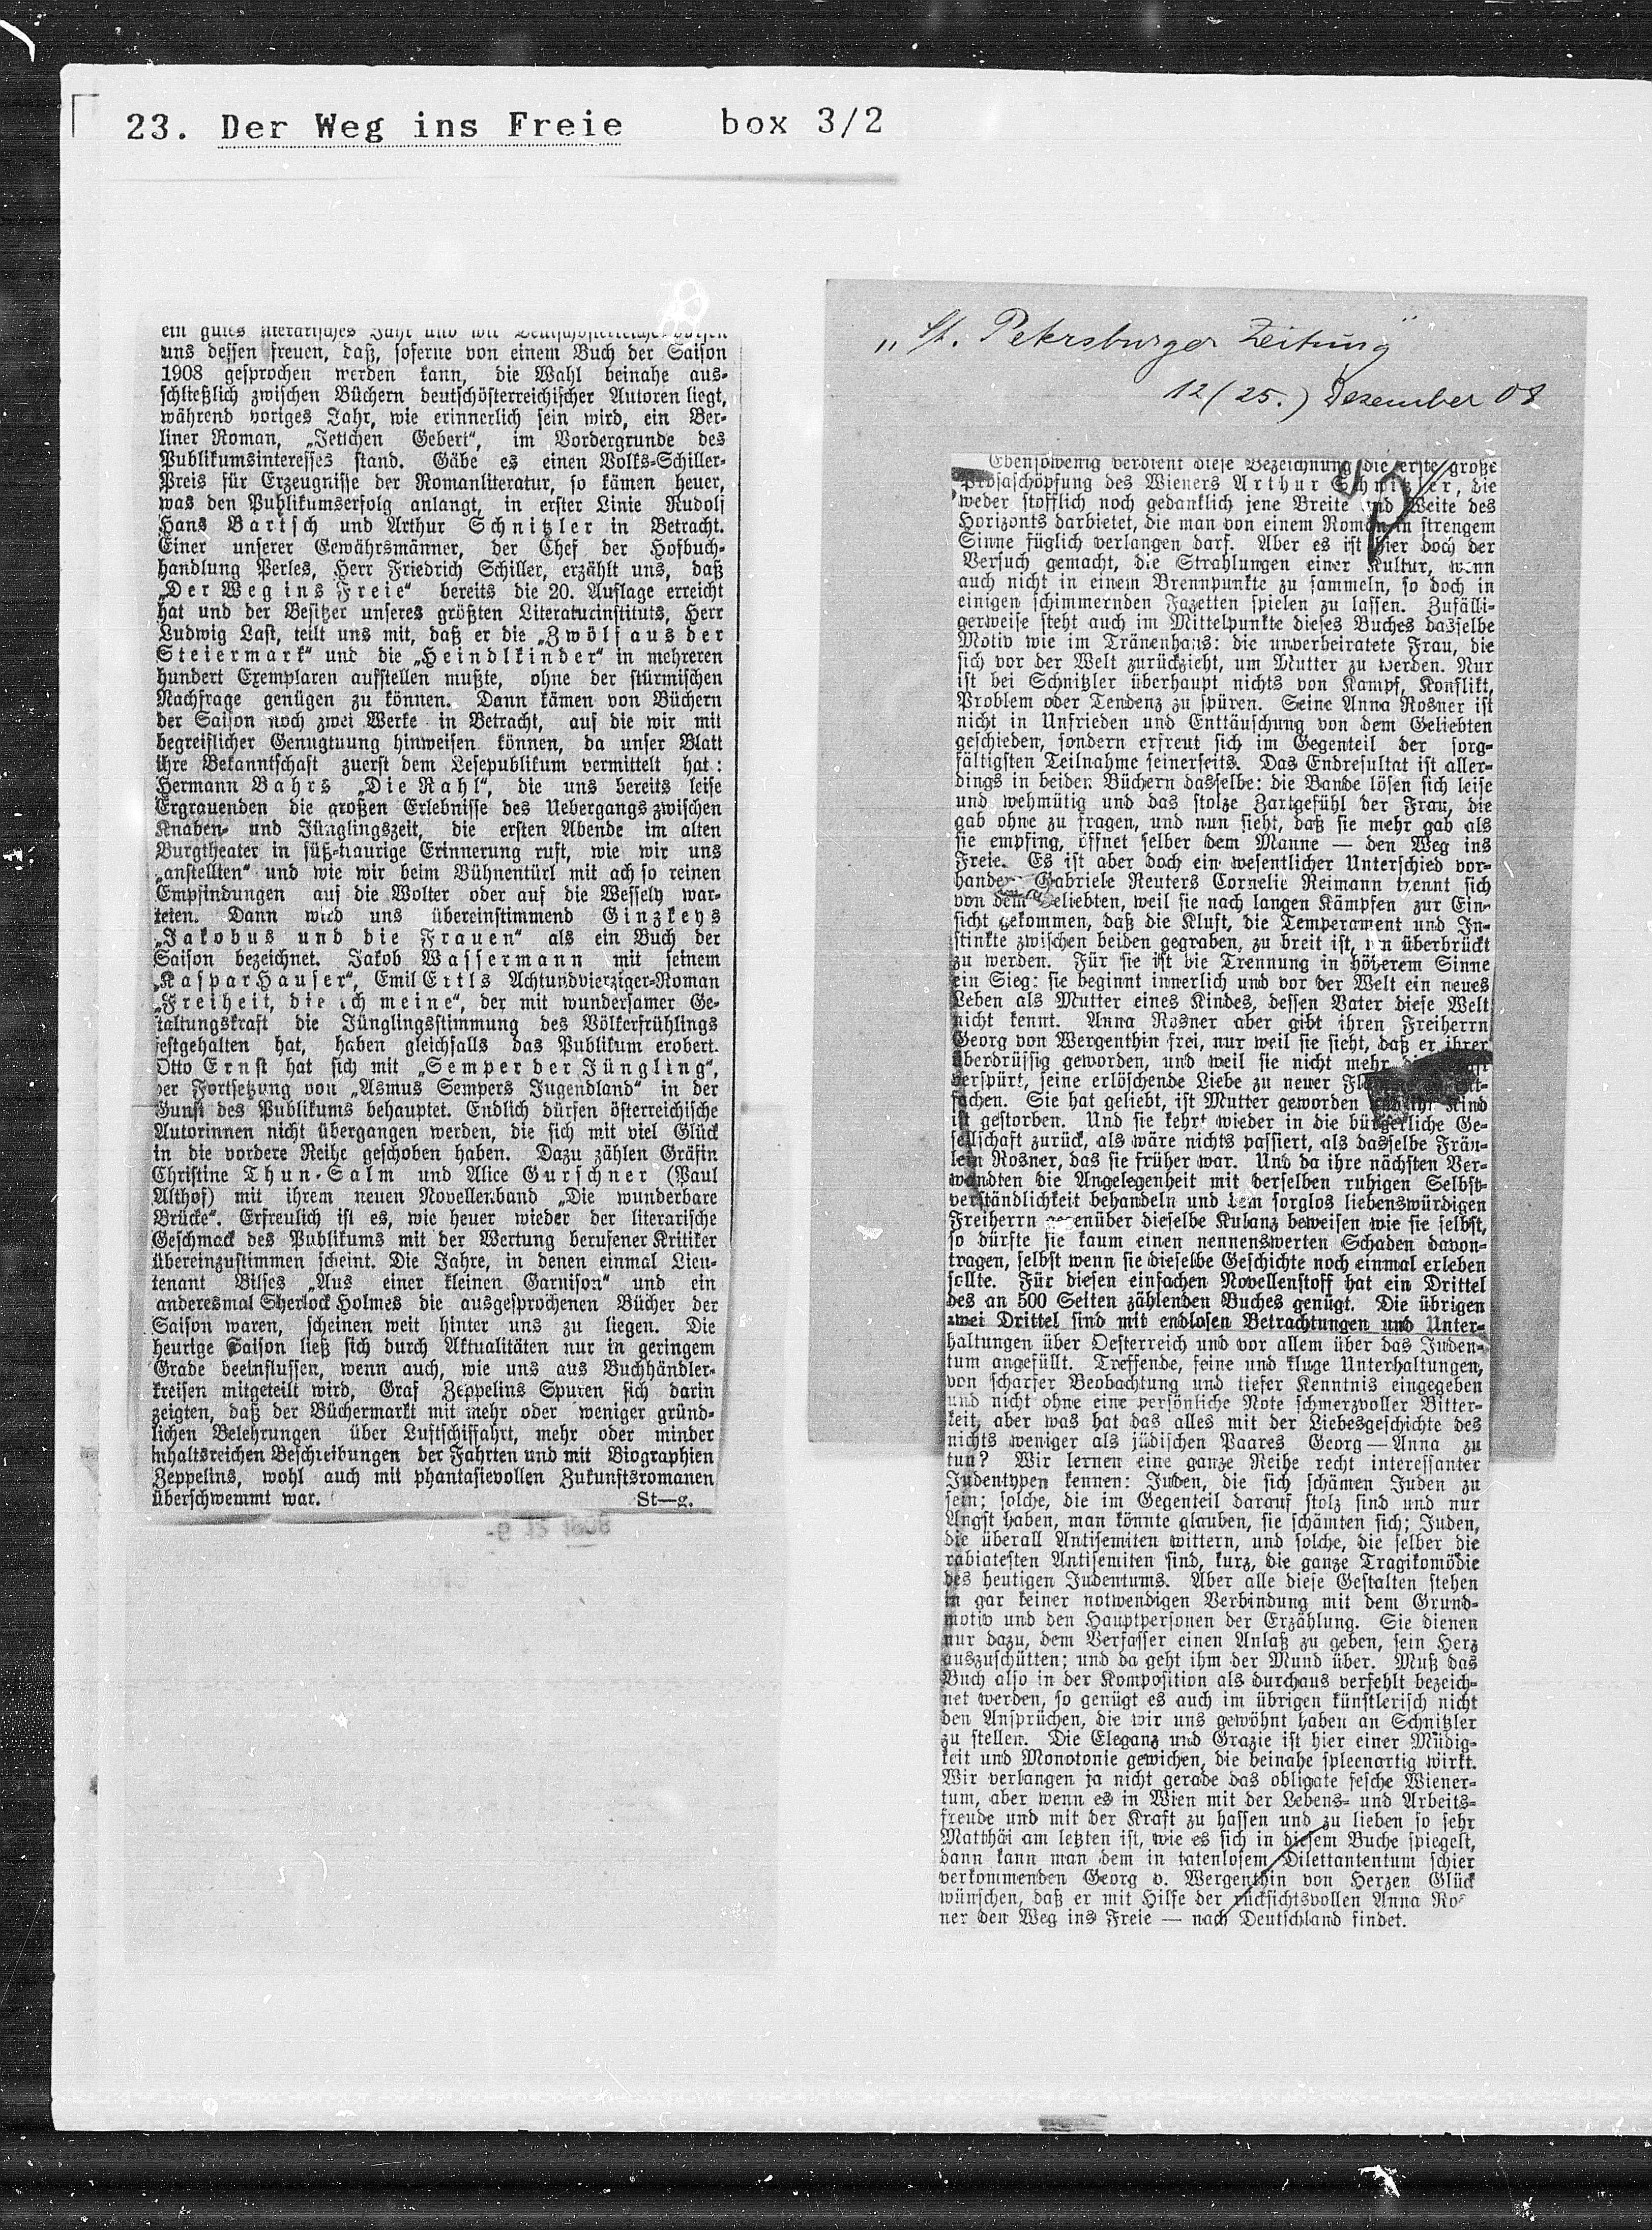 23. Der Weg ins Freie box 3/2
ein gutes literarisches Jahr und wir
uns dessen freuen, daß, soferne von einem Buch der Saison
1908 gesprochen werden kann, die Wahl beinahe aus-
schließlich zwischen Büchern deutschösterreichischer Autoren liegt,
während voriges Jahr, wie erinnerlich sein wird, ein Ber-
liner Roman, „Jettchen Gebert“, im Vordergrunde des
Publikumsinteresses stand. Gäbe es einen Volks-Schiller-
Preis für Erzeugnisse der Romanliteratur, so kämen heuer,
was den Publikumserfolg anlangt, in erster Linie Rudolf
Hans Bartsch und Arthur Schnitzler in Betracht.
Einer unserer Gewährsmänner, der Chef der Hofbuch-
handlung Perles, Herr Friedrich Schiller, erzählt uns, daß
„Der Weg ins Freie“ bereits die 20. Auflage erreicht
hat und der Besitzer unseres größten Literaturinstituts, Herr
Ludwig Last, teilt uns mit, daß er die „Zwölf aus der
Steiermark“ und die „Heindlkinder“ in mehreren
hundert Exemplaren aufstellen mußte, ohne der stürmischen
Nachfrage genügen zu können. Dann kämen von Büchern
der Saison noch zwei Werke in Betracht, auf die wir mit
begreiflicher Genugtuung hinweisen können, da unser Blatt
ihre Bekanntschaft zuerst dem Lesepublikum vermittelt hat:
Hermann Bahrs „Die Rahl“, die uns bereits leise
Ergrauenden die großen Erlebnisse des Uebergangs zwischen
Knaben- und Jünglingszeit, die ersten Abende im alten
Burgtheater in süß-traurige Erinnerung ruft, wie wir uns
„anstellten“ und wie wir beim Bühnentürl mit ach so reinen
Empfindungen auf die Wolter oder auf die Wessely war-
teten. Dann wird uns übereinstimmend Ginzkeys
„Jakobus und die Frauen“ als ein Buch der
Saison bezeichnet. Jakob Wassermann mit seinem
„Kaspar Hauser“, Emil Ertls Achtundvierziger-Roman
„Freiheit, die ich meine“, der mit wundersamer Ge-
staltungskraft die Jünglingsstimmung des Völkerfrühlings
festgehalten hat, haben gleichfalls das Publikum erobert.
Otto Ernst hat sich mit „Semper der Jüngling“,
der Fortsetzung von „Asmus Sempers Jugendland“ in der
Gunst des Publikums behauptet. Endlich dürfen österreichische
Autorinnen nicht übergangen werden, die sich mit viel Glück
in die vordere Reihe geschoben haben. Dazu zählen Gräfin
Christine Thun-Salm und Alice Gurschner (Paul
Althof) mit ihrem neuen Novellenband „Die wunderbare
Brücke“. Erfreulich ist es, wie heuer wieder der literarische
Geschmack des Publikums mit der Wertung berufener Kritiker
übereinzustimmen scheint. Die Jahre, in denen einmal Lieu-
tenant Bilses „Aus einer kleinen Garnison“ und ein
anderesmal Sherlock Holmes die ausgesprochenen Bücher der
Saison waren, scheinen weit hinter uns zu liegen. Die
heurige Saison ließ sich durch Aktualitäten nur in geringem
Grade beeinflussen, wenn auch, wie uns aus Buchhändler-
kreisen mitgeteilt wird, Graf Zeppelins Spuren sich darin
zeigten, daß der Büchermarkt mit mehr oder weniger gründ-
lichen Belehrungen über Luftschiffahrt, mehr oder minder
inhaltsreichen Beschreibungen der Fahrten und mit Biographien
Zeppelins, wohl auch mit phantasievollen Zukunftsromanen
überschwemmt war. St—g.
-9 12 1908
„St. Petersburger Zeitung“
12 (25.) Dezember 08
Ebensowenig verdient diese Bezeichnung die erste große
Prosaschöpfung des Wieners Arthur Schnitzler, die
weder stofflich noch gedanklich jene Breite und Weite des
Horizonts darbietet, die man von einem Roman in strengem
Sinne füglich verlangen darf. Aber es ist hier doch der
Versuch gemacht, die Strahlungen einer Kultur, wenn
auch nicht in einem Brennpunkte zu sammeln, so doch in
einigen schimmernden Fazetten spielen zu lassen. Zufälli-
gerweise steht auch im Mittelpunkte dieses Buches dasselbe
Motiv wie im Tränenhaus: die unverheiratete Frau, die
sich vor der Welt zurückzieht, um Mutter zu werden. Nur
ist bei Schnitzler überhaupt nichts von Kampf, Konflikt,
Problem oder Tendenz zu spüren. Seine Anna Rosner ist
nicht in Unfrieden und Enttäuschung von dem Geliebten
geschieden, sondern erfreut sich im Gegenteil der sorg-
fältigsten Teilnahme seinerseits. Das Endresultat ist aller-
dings in beiden Büchern dasselbe: die Bande lösen sich leise
und wehmütig und das stolze Zartgefühl der Frau, die
gab ohne zu fragen, und nun sieht, daß sie mehr gab als
sie empfing, öffnet selber dem Manne — den Weg ins
Freie. Es ist aber doch ein wesentlicher Unterschied vor-
handen. Gabriele Reuters Cornelie Reimann trennt sich
von dem Geliebten, weil sie nach langen Kämpfen zur Ein-
sicht gekommen, daß die Kluft, die Temperament und In-
stinkte zwischen beiden gegraben, zu breit ist, um überbrückt
zu werden. Für sie ist die Trennung in höherem Sinne
ein Sieg: sie beginnt innerlich und vor der Welt ein neues
Leben als Mutter eines Kindes, dessen Vater diese Welt
nicht kennt. Anna Rosner aber gibt ihren Freiherrn
Georg von Wergenthin frei, nur weil sie sieht, daß er ihrer
überdrüssig geworden, und weil sie nicht mehr
verspürt, seine erlöschende Liebe zu neuer
fachen. Sie hat geliebt, ist Mutter geworden und ihr Kind
ist gestorben. Und sie kehrt wieder in die bürgerliche Ge-
sellschaft zurück, als wäre nichts passiert, als dasselbe Fräu-
lein Rosner, das sie früher war. Und da ihre nächsten Ver-
wandten die Angelegenheit mit derselben ruhigen Selbst-
verständlichkeit behandeln und dem sorglos liebenswürdigen
Freiherrn gegenüber dieselbe Kulanz beweisen wie sie selbst,
so dürfte sie kaum einen nennenswerten Schaden davon-
tragen, selbst wenn sie dieselbe Geschichte noch einmal erleben
sollte. Für diesen einfachen Novellenstoff hat ein Drittel
des an 500 Seiten zählenden Buches genügt. Die übrigen
zwei Drittel sind mit endlosen Betrachtungen und Unter-
haltungen über Oesterreich und vor allem über das Juden-
tum angefüllt. Treffende, feine und kluge Unterhaltungen,
von scharfer Beobachtung und tiefer Kenntnis eingegeben
und nicht ohne eine persönliche Note schmerzvoller Bitter-
keit, aber was hat das alles mit der Liebesgeschichte des
nichts weniger als jüdischen Paares Georg—Anna zu
tun? Wir lernen eine ganze Reihe recht interessanter
Judentypen kennen: Juden, die sich schämen Juden zu
sein; solche, die im Gegenteil darauf stolz sind und nur
Angst haben, man könnte glauben, sie schämten sich; Juden,
die überall Antisemiten wittern, und solche, die selber die
rabiatesten Antisemiten sind, kurz, die ganze Tragikomödie
des heutigen Judentums. Aber alle diese Gestalten stehen
in gar keiner notwendigen Verbindung mit dem Grund-
motiv und den Hauptpersonen der Erzählung. Sie dienen
nur dazu, dem Verfasser einen Anlaß zu geben, sein Herz
auszuschütten; und da geht ihm der Mund über. Muß das
Buch also in der Komposition als durchaus verfehlt bezeich-
net werden, so genügt es auch im übrigen künstlerisch nicht
den Ansprüchen, die wir uns gewöhnt haben an Schnitzler
zu stellen. Die Eleganz und Grazie ist hier einer Müdig-
keit und Monotonie gewichen, die beinahe spleenartig wirkt.
Wir verlangen ja nicht gerade das obligate fesche Wiener-
tum, aber wenn es in Wien mit der Lebens- und Arbeits-
freude und mit der Kraft zu hassen und zu lieben so sehr
Matthäi am letzten ist, wie es sich in diesem Buche spiegelt,
dann kann man dem in tatenlosem Dilettantentum schier
verkommenden Georg v. Wergenthin von Herzen Glück
wünschen, daß er mit Hilfe der rücksichtsvollen Anna Ros-
ner den Weg ins Freie — nach Deutschland findet.